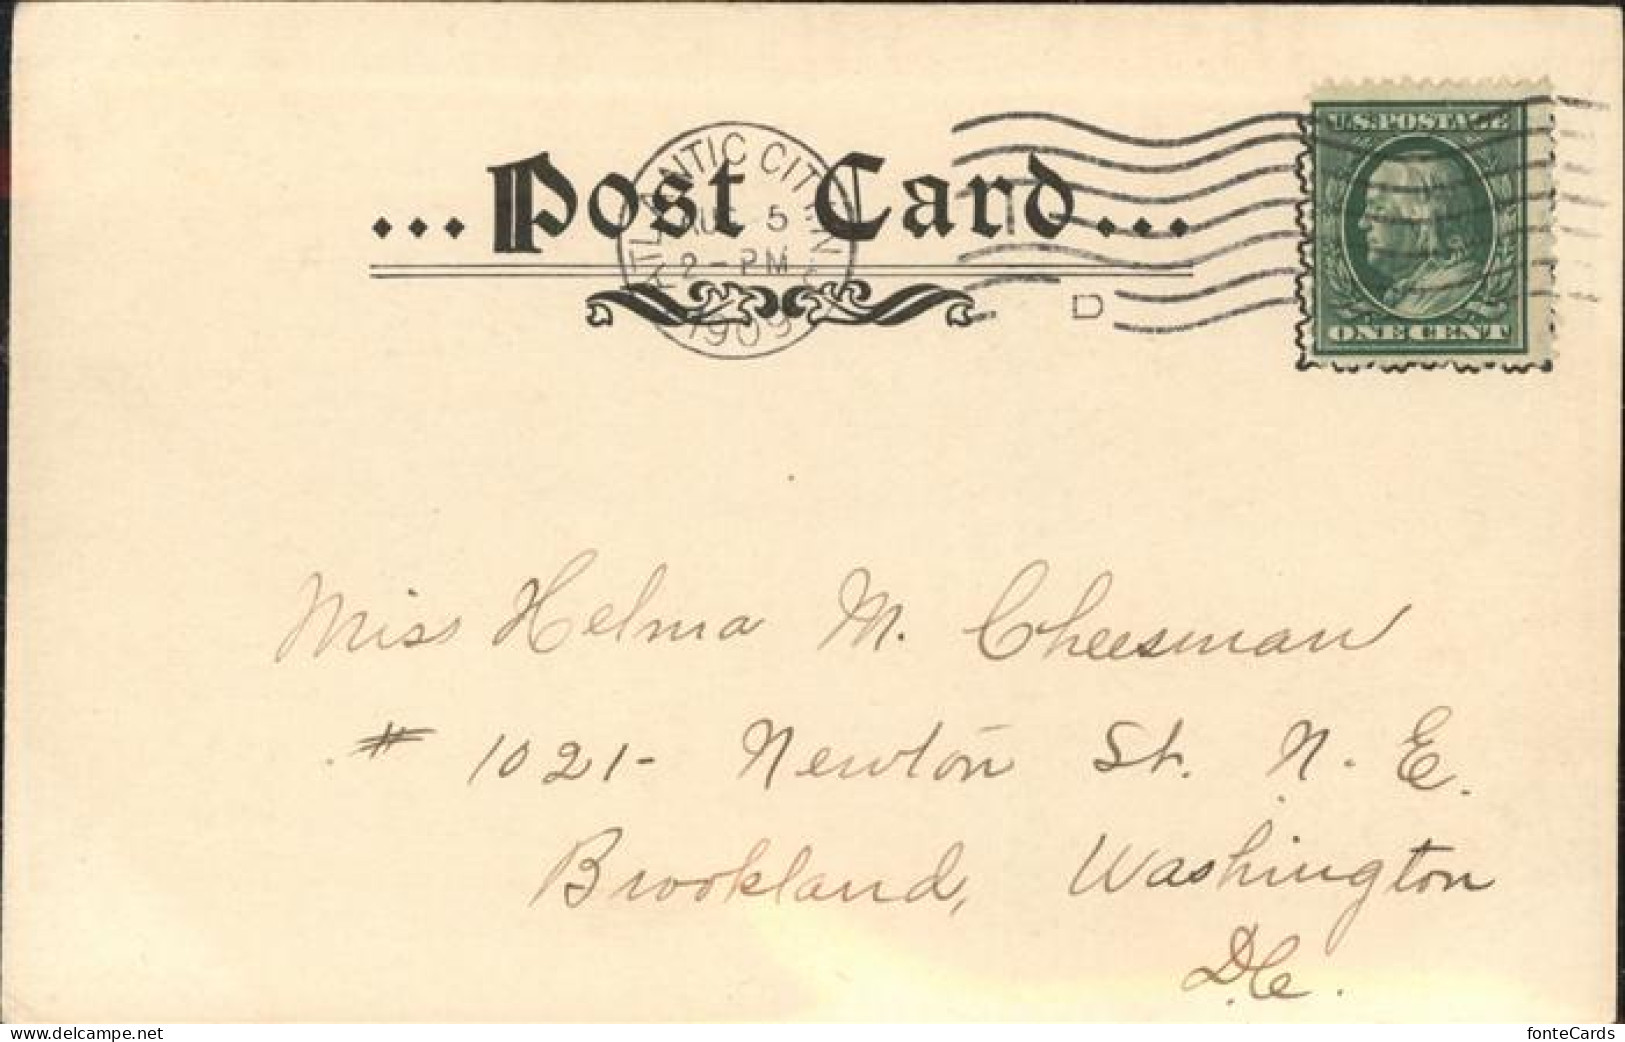 U.S. POSTAGE
ATLANTIC CITY, N.J.
...Post Card...
5
2-PM
1909
D
ONE CENT
Miss Helma M. Cheesman
# 1021- Newton St. N. E.
Brookland, Washington
D.C.
delcampe.net
fonteCards